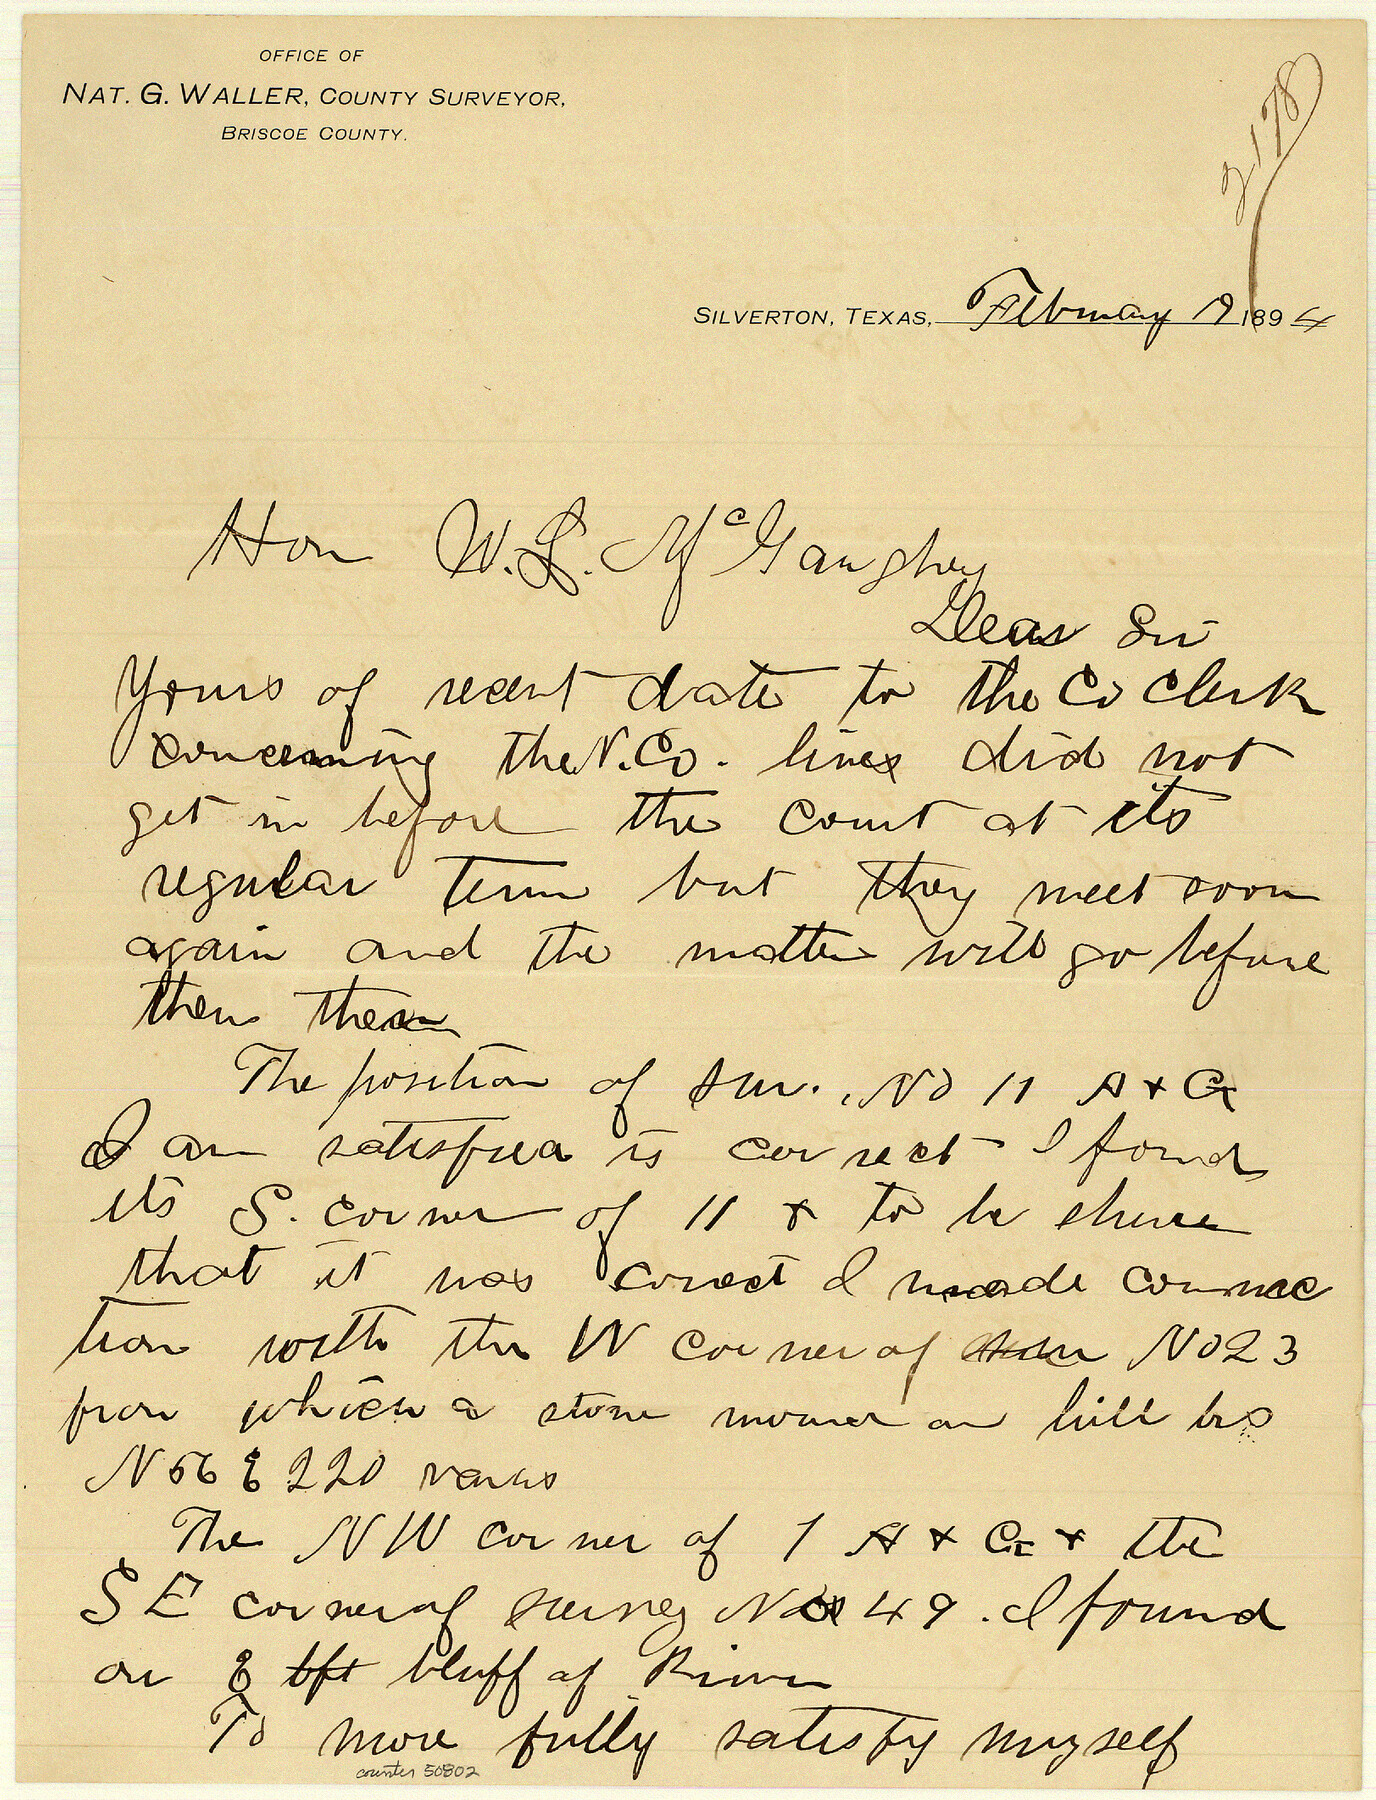 OFFICE OF
NAT. G. WALLER, COUNTY SURVEYOR,
BRISCOE COUNTY.
2178
SILVERTON, TEXAS, February 9 1894
Hon W. L. McGaughey
Dear Sir
Yours of recent date to the Co Clerk
concerning the N. Co. lines did not
get in before the court at its
regular term but they meet soon
again and the matter will go before
them then
The position of sur. No 11 A + G
I am satisfied is correct I found
its S. corner of 11 + to be shure
that it was correct I made connec
tion with the W corner of No 23
from which a stone on hill brs
N 56 E 220 varas
The NW corner of 1 A + G + the
SE corner of survey No 49. I found
on E bft bluff of River
To more fully satisfy myself
counter 50802